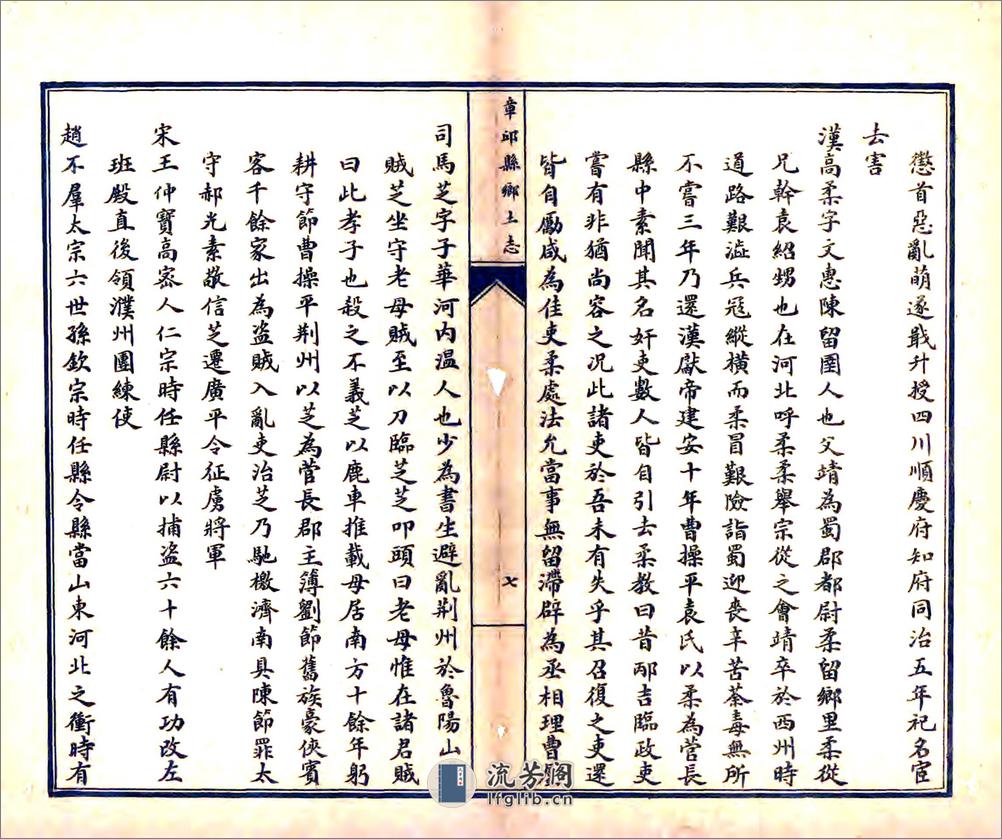 懲首惡亂萌遂戢升授四川順慶府知府同治五年祀名宦
去害
漢高柔字文惠陳留圉人也父靖為蜀郡都尉柔留鄉里柔從
兄幹袁紹甥也在河北呼柔柔舉宗從之會靖卒於西州時
道路艱澁兵寇縱橫而柔冒艱險詣蜀迎喪辛苦荼毒無所
不嘗三年乃還漢獻帝建安十年曹操平袁氏以柔為菅長
縣中素聞其名奸吏數人皆自引去柔教曰昔邴吉臨政吏
嘗有非猶尚容之況此諸吏於吾未有失乎其召復之吏還
皆自勵咸為佳吏柔處法允當事無留滯辟為丞相理曹
章邱縣鄉土志
七
司馬芝字子華河內溫人也少為書生避亂荆州於魯陽山
賊芝坐守老母賊至以刀臨芝芝叩頭曰老母惟在諸君賊
曰此孝子也殺之不義芝以鹿車推載母居南方十餘年躬
耕守節曹操平荆州以芝為菅長郡主簿劉節舊族豪俠賓
客千餘家出為盜賊入亂吏治芝乃馳檄濟南具陳節罪太
守郝光素敬信芝遷廣平令征虜將軍
宋王仲寶高密人仁宗時任縣尉以捕盜六十餘人有功改左
班殿直後領濮州團練使
趙不羣太宗六世孫欽宗時任縣令縣當山東河北之衝時有
流芳閣
lfglib.cn